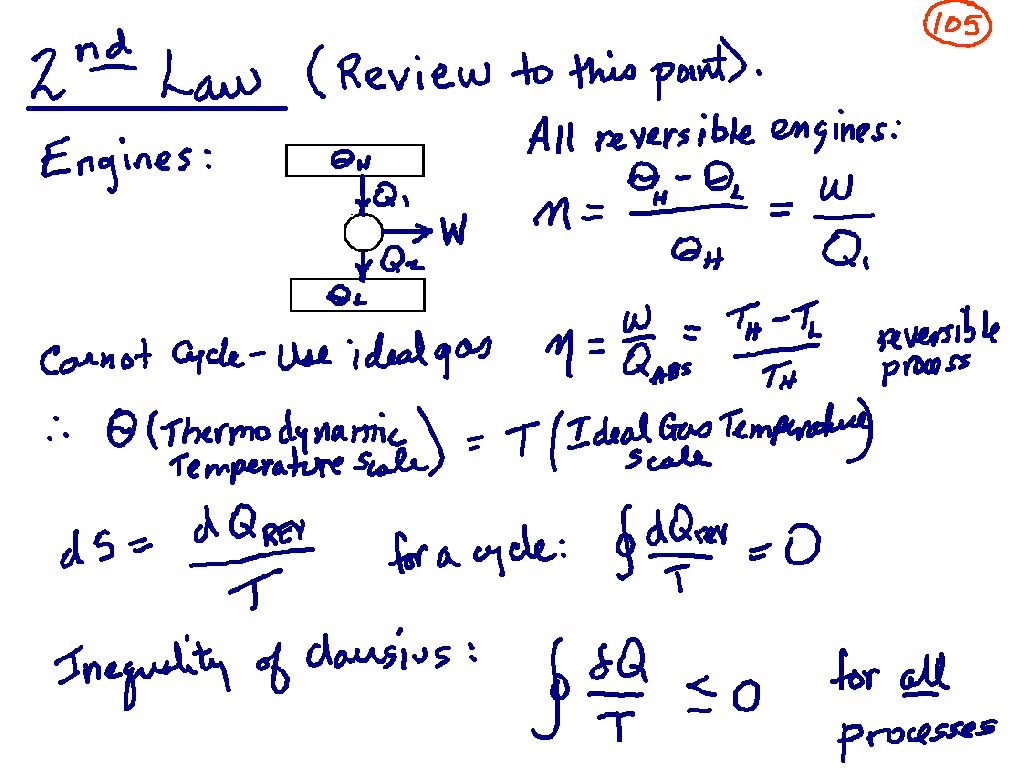 105
2nd Law (Review to this point).
Engines:
All reversible engines:
ΘH
Q1
W
Q2
ΘL
η = (ΘH - ΘL) / ΘH = W / Q1
Carnot Cycle - Use ideal gas η = W / QABS = (TH - TL) / TH reversible process
∴ Θ (Thermodynamic Temperature Scale) = T (Ideal Gas Temperature Scale)
dS = dQREV / T for a cycle: ∮ dQrev / T = 0
Inequality of Clausius: ∮ δQ / T ≤ 0 for all processes